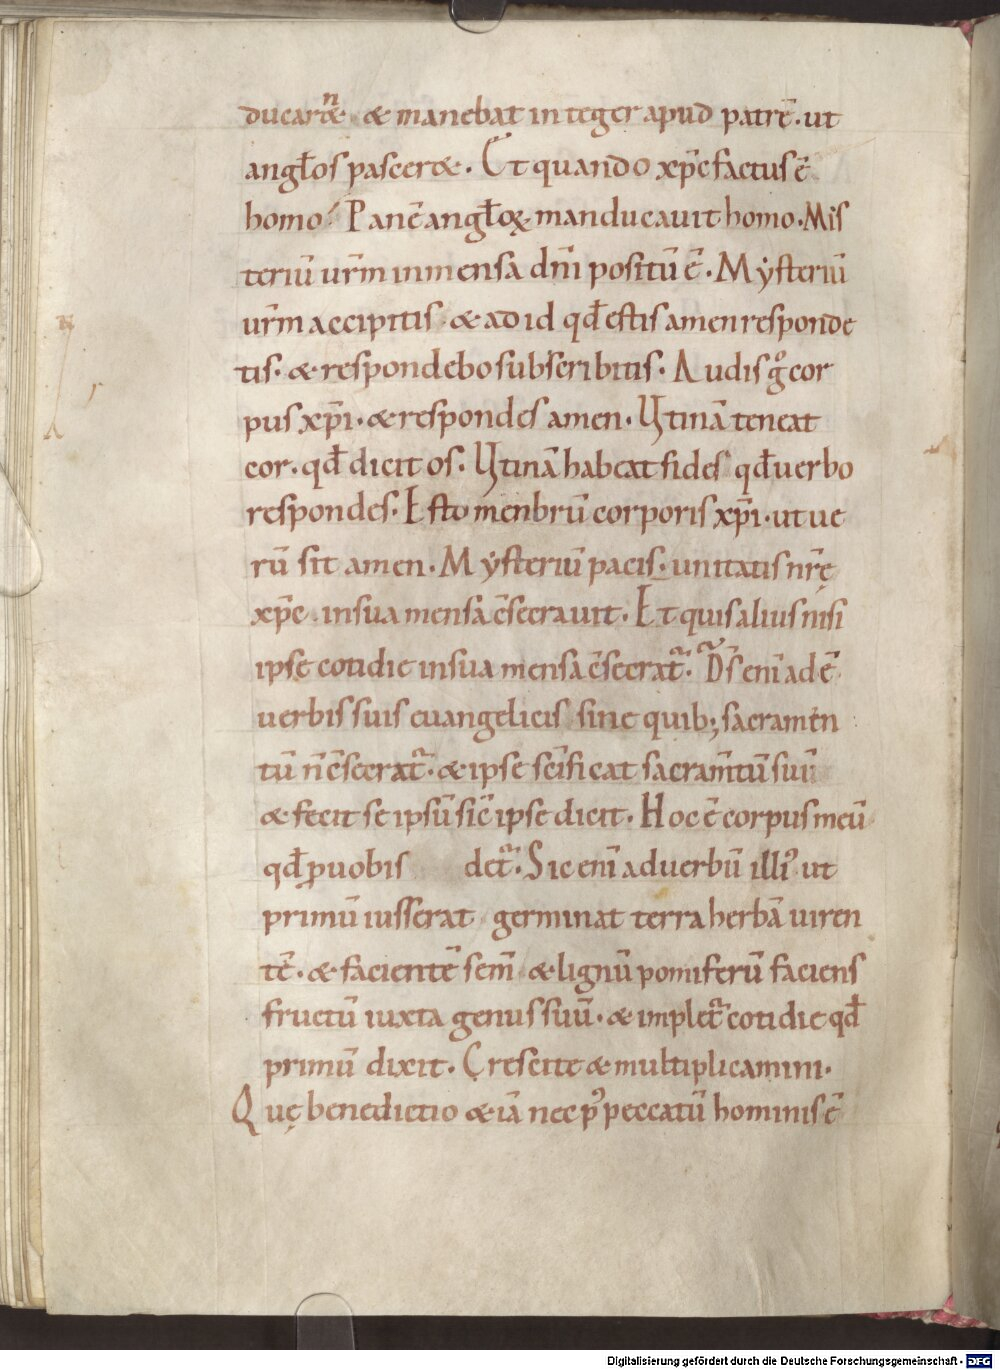 ducarēt & manebat integer apud patrē· ut
angłos pascer&· Et quando xp̄c factus ē
homo· Panē angłoꝝ manducauit homo· Mis
teriū ur̄m in mensa dn̄i positū ē· Mẏsteriū
ur̄m accipitis & ad id qđ estis amen responde
tis· & respondebo subscribitis· Audis gͦ cor
pus xp̄i· & respondes amen· Utinā teneat
cor· qđ dicit os· Utinā habeat fides qđ uerbo
respondes· Esto menbrū corporis xp̄i· ut ue
rū sit amen· Mẏsteriū pacis· unitatis nr̄ę
xp̄c in sua mensa c̄secrauit· Et quis alius nisi
ipse cotidie in sua mensa c̄secrat᷑· Ds̄ eni adē
uerbis suis euangelicis sine quib; sacramēn
tū n̄ c̄secrat᷑· & ipse sc̄ificat sacram̄tū suū
& fecit se ipsū sic̄ ipse dicit· Hoc ē corpus meū
qđ ꝓ uobis det᷑· Sic eni ad uerbū illiꝰ ut
primū iusserat germinat terra herbā uiren
tē· & facientē sem̄ & lignū pomiferū faciens
fructū iuxta genus suū· & implet᷑ cotidie qđ
primū dixit· Crescite & multiplicamini·
Quę benedictio & iā nec pꝰ peccatū hominis ē
Digitalisierung gefördert durch die Deutsche Forschungsgemeinschaft - DFG